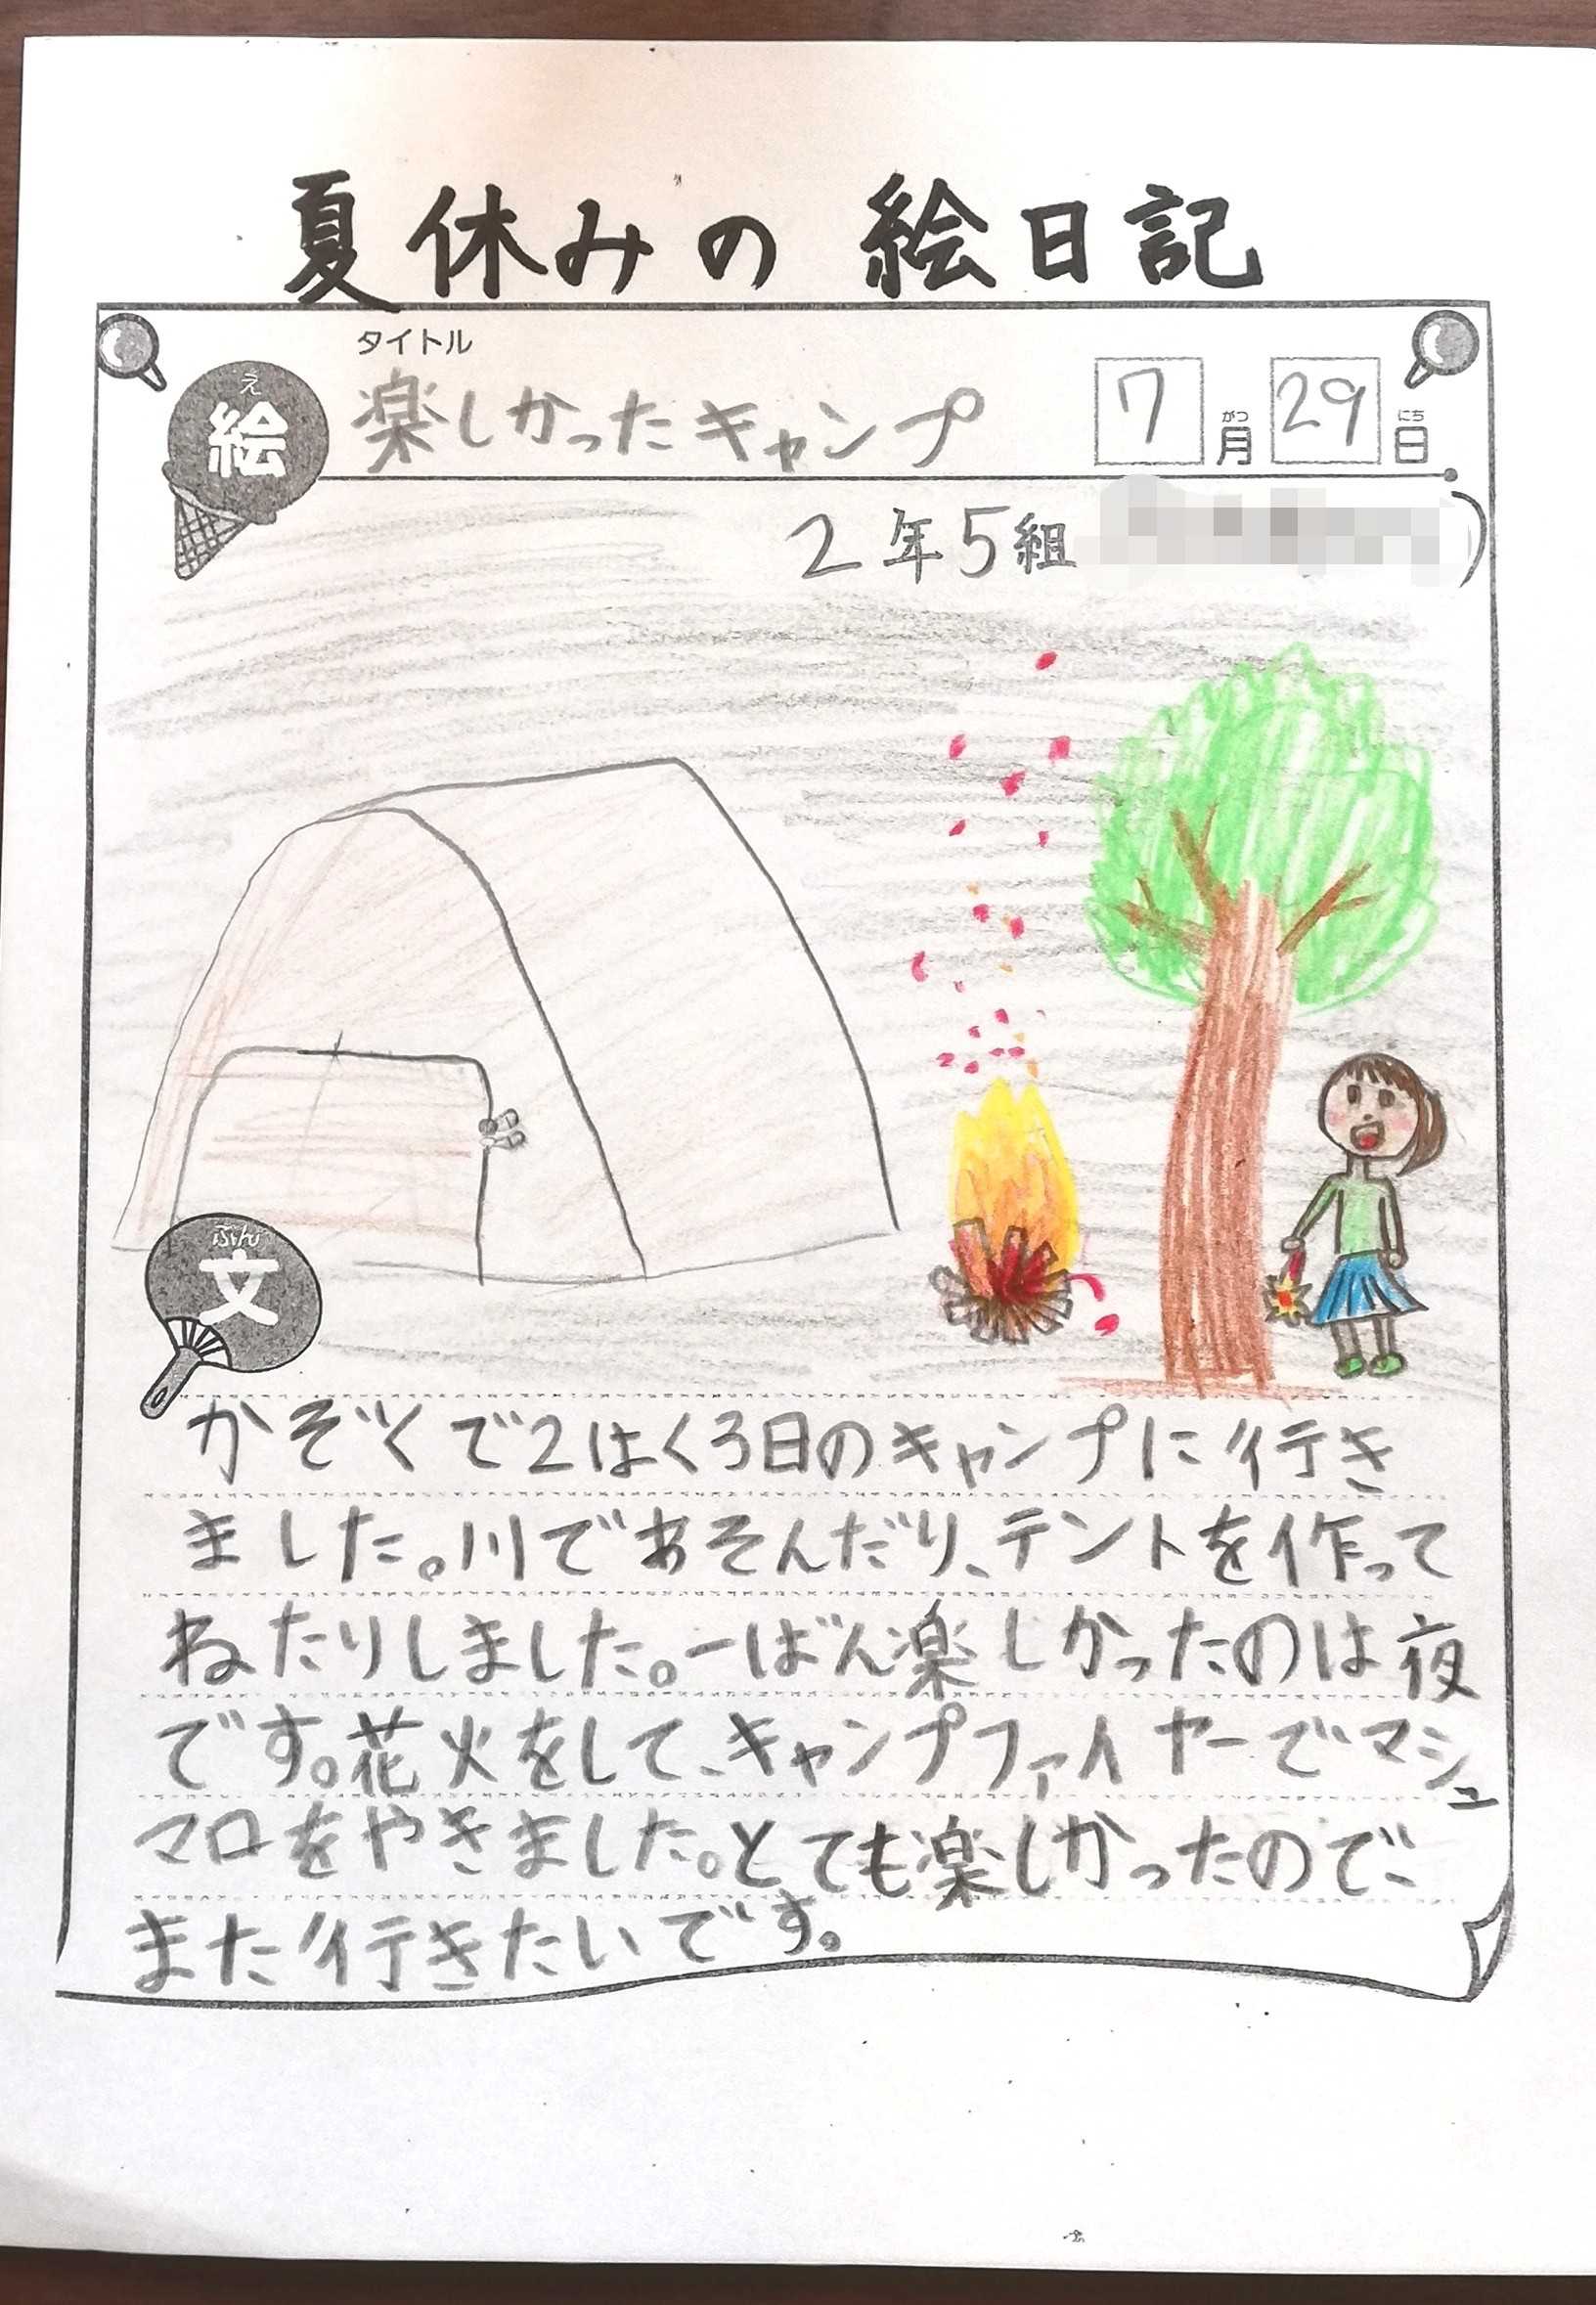 夏休みの 絵日記
タイトル
え
絵
楽しかったキャンプ
7 月 29 日
がつ にち
2年5組 )
ぶん
文
かぞくで2はく3日のキャンプに行き
ました。川であそんだり、テントを作って
ねたりしました。一ばん楽しかったのは夜
です。花火をして、キャンプファイヤーでマシュ
マロをやきました。とても楽しかったので、
また行きたいです。